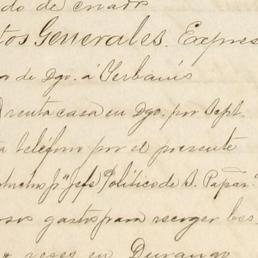 do de criado
tos Generales. Expres
a de Dgo. á Yerbanís
Renta casa en Dgo. por Sept.
a teléfono por el presente
pª Jefe Político de S. Papas
sos gastos para recoger bes
reses en Durango